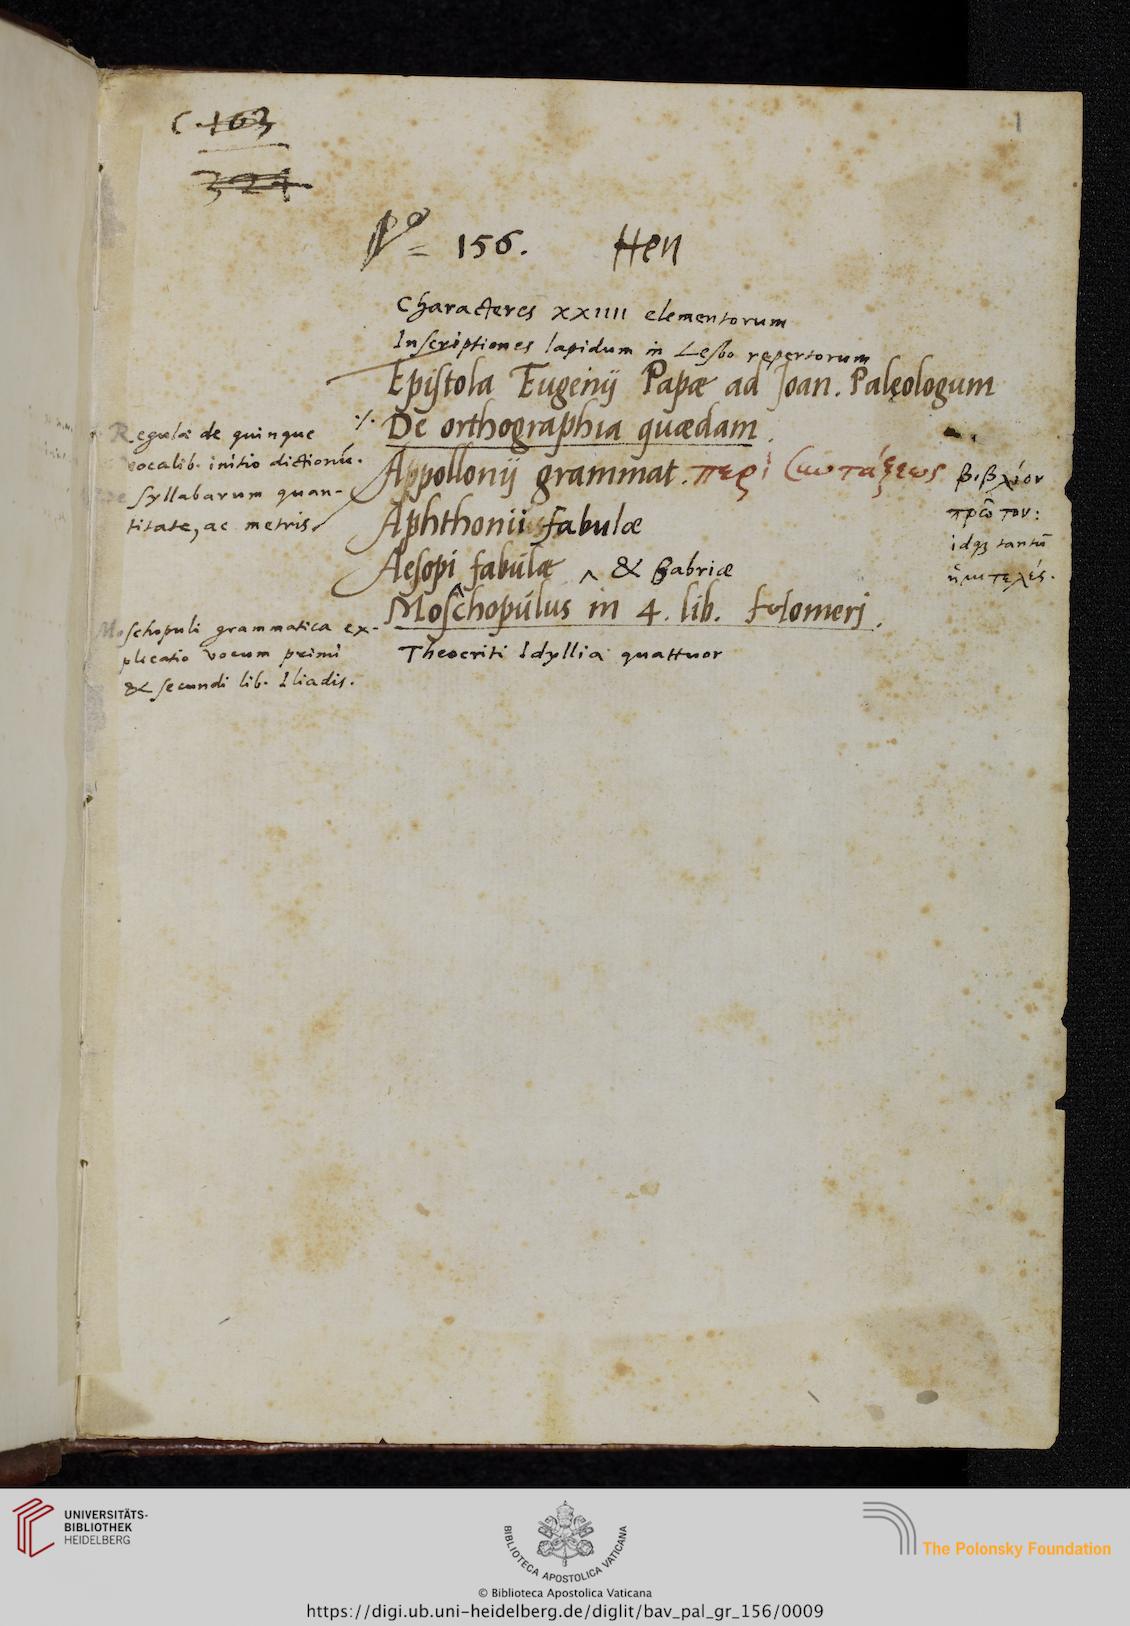 C. 163
324
1
No = 156. Hen
Characteres XXIIII elementorum
Inscriptiones lapidum in Lesbo repertorum
Epistola Eugenij Papæ ad Joan. Palęologum
·/· De orthographia quædam.
Appollonij grammat. περὶ συντάξεως
βιβλίον
πρῶτον:
idq₃ tantū
ἡμιτελές.
Regulæ de quinque
vocalib. initio dictionū.
De syllabarum quan-
titate, ac metris
Aphthonii fabulæ
Aesopi fabulæ ‸ & Babriæ
Moschopulus in 4. lib. Homeri.
Theocriti Idyllia quattuor
Moschopuli grammatica ex-
plicatio vocum primi
& secundi lib. Iliadis.
UNIVERSITÄTS-
BIBLIOTHEK
HEIDELBERG
BIBLIOTECA APOSTOLICA VATICANA
The Polonsky Foundation
© Biblioteca Apostolica Vaticana
https://digi.ub.uni-heidelberg.de/diglit/bav_pal_gr_156/0009